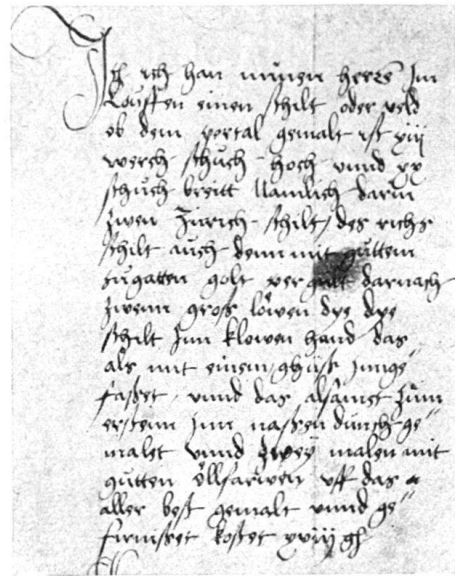 Jtt ich han minen herrē Im
Kouffen einen schilt oder veld
ob dem portal gemalt ist xiij
werch schůch hoch vnnd xx
schůch breitt Namlich darin
zwen Zürich schilt / des richs
schilt auch denn mit guttem
tugatten golt vergült darnach
zwenn gross löwen dye dye
schilt Inn klowen hand das
als mit einem ghüss Inge=
fasset / vnnd das alsamet zum
erstenn Inn nassen durch ge=
malet vnnd zwey malen mit
gutten öllfarwen vff das
aller best gemalt vnnd ge=
firnisset kostet xviij gl